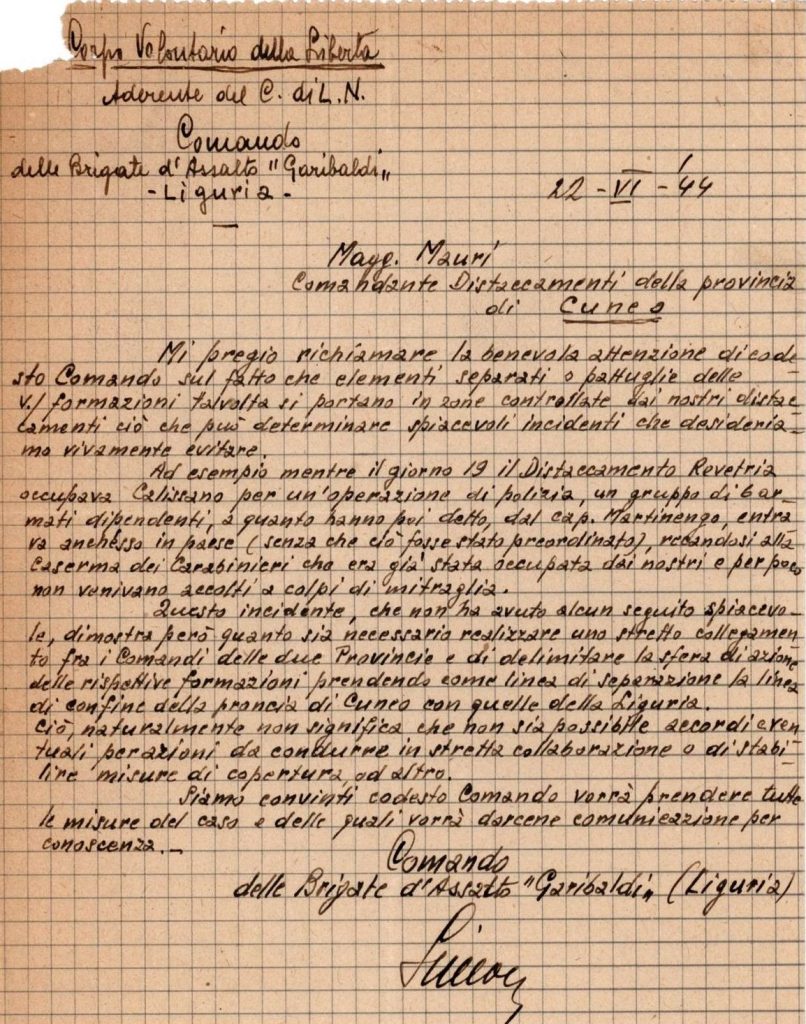 Corpo Volontario della Libertà
Aderente del C. di L.N.
Comando
delle Brigate d'Assalto "Garibaldi"
- Liguria -
22 - VI - '44
Magg. Mauri
Comandante Distaccamenti della provincia
di Cuneo
Mi pregio richiamare la benevola attenzione di code-
sto Comando sul fatto che elementi separati o pattuglie delle
V./ formazioni tavolta si portano in zone controllate dai nostri distac-
camenti ciò che può determinare spiacevoli incidenti che desideria-
mo vivamente evitare.
Ad esempio mentre il giorno 19 il Distaccamento Revetria
occupava Calissano per un'operazione di polizia, un gruppo di 6 ar-
mati dipendenti, a quanto hanno poi detto, dal cap. Martinengo, entra
va anchesso in paese (senza che ciò fosse stato preordinato), recandosi alla
Caserma dei Carabinieri che era già stata occupata dai nostri e per poco
non venivano accolti a colpi di mitraglia.
Questo incidente, che non ha avuto alcun seguito spiacevo-
le, dimostra però quanto sia necessario realizzare uno stretto collegamen
to fra i Comandi delle due Provincie e di delimitare la sfera di azione
delle rispettive formazioni prendendo come linea di separazione la linea
di confine della proncia di Cuneo con quelle della Liguria.
Ciò, naturalmente non significa che non sia possibile accordi even-
tuali perazioni da condurre in stretta collaborazione o di stabi-
lire misure di copertura od altro.
Siamo convinti codesto Comando vorrà prendere tutte
le misure del caso e delle quali vorrà darcene comunicazione per
conoscenza. -
Comando
delle Brigate d'Assalto "Garibaldi" (Liguria)
Simon